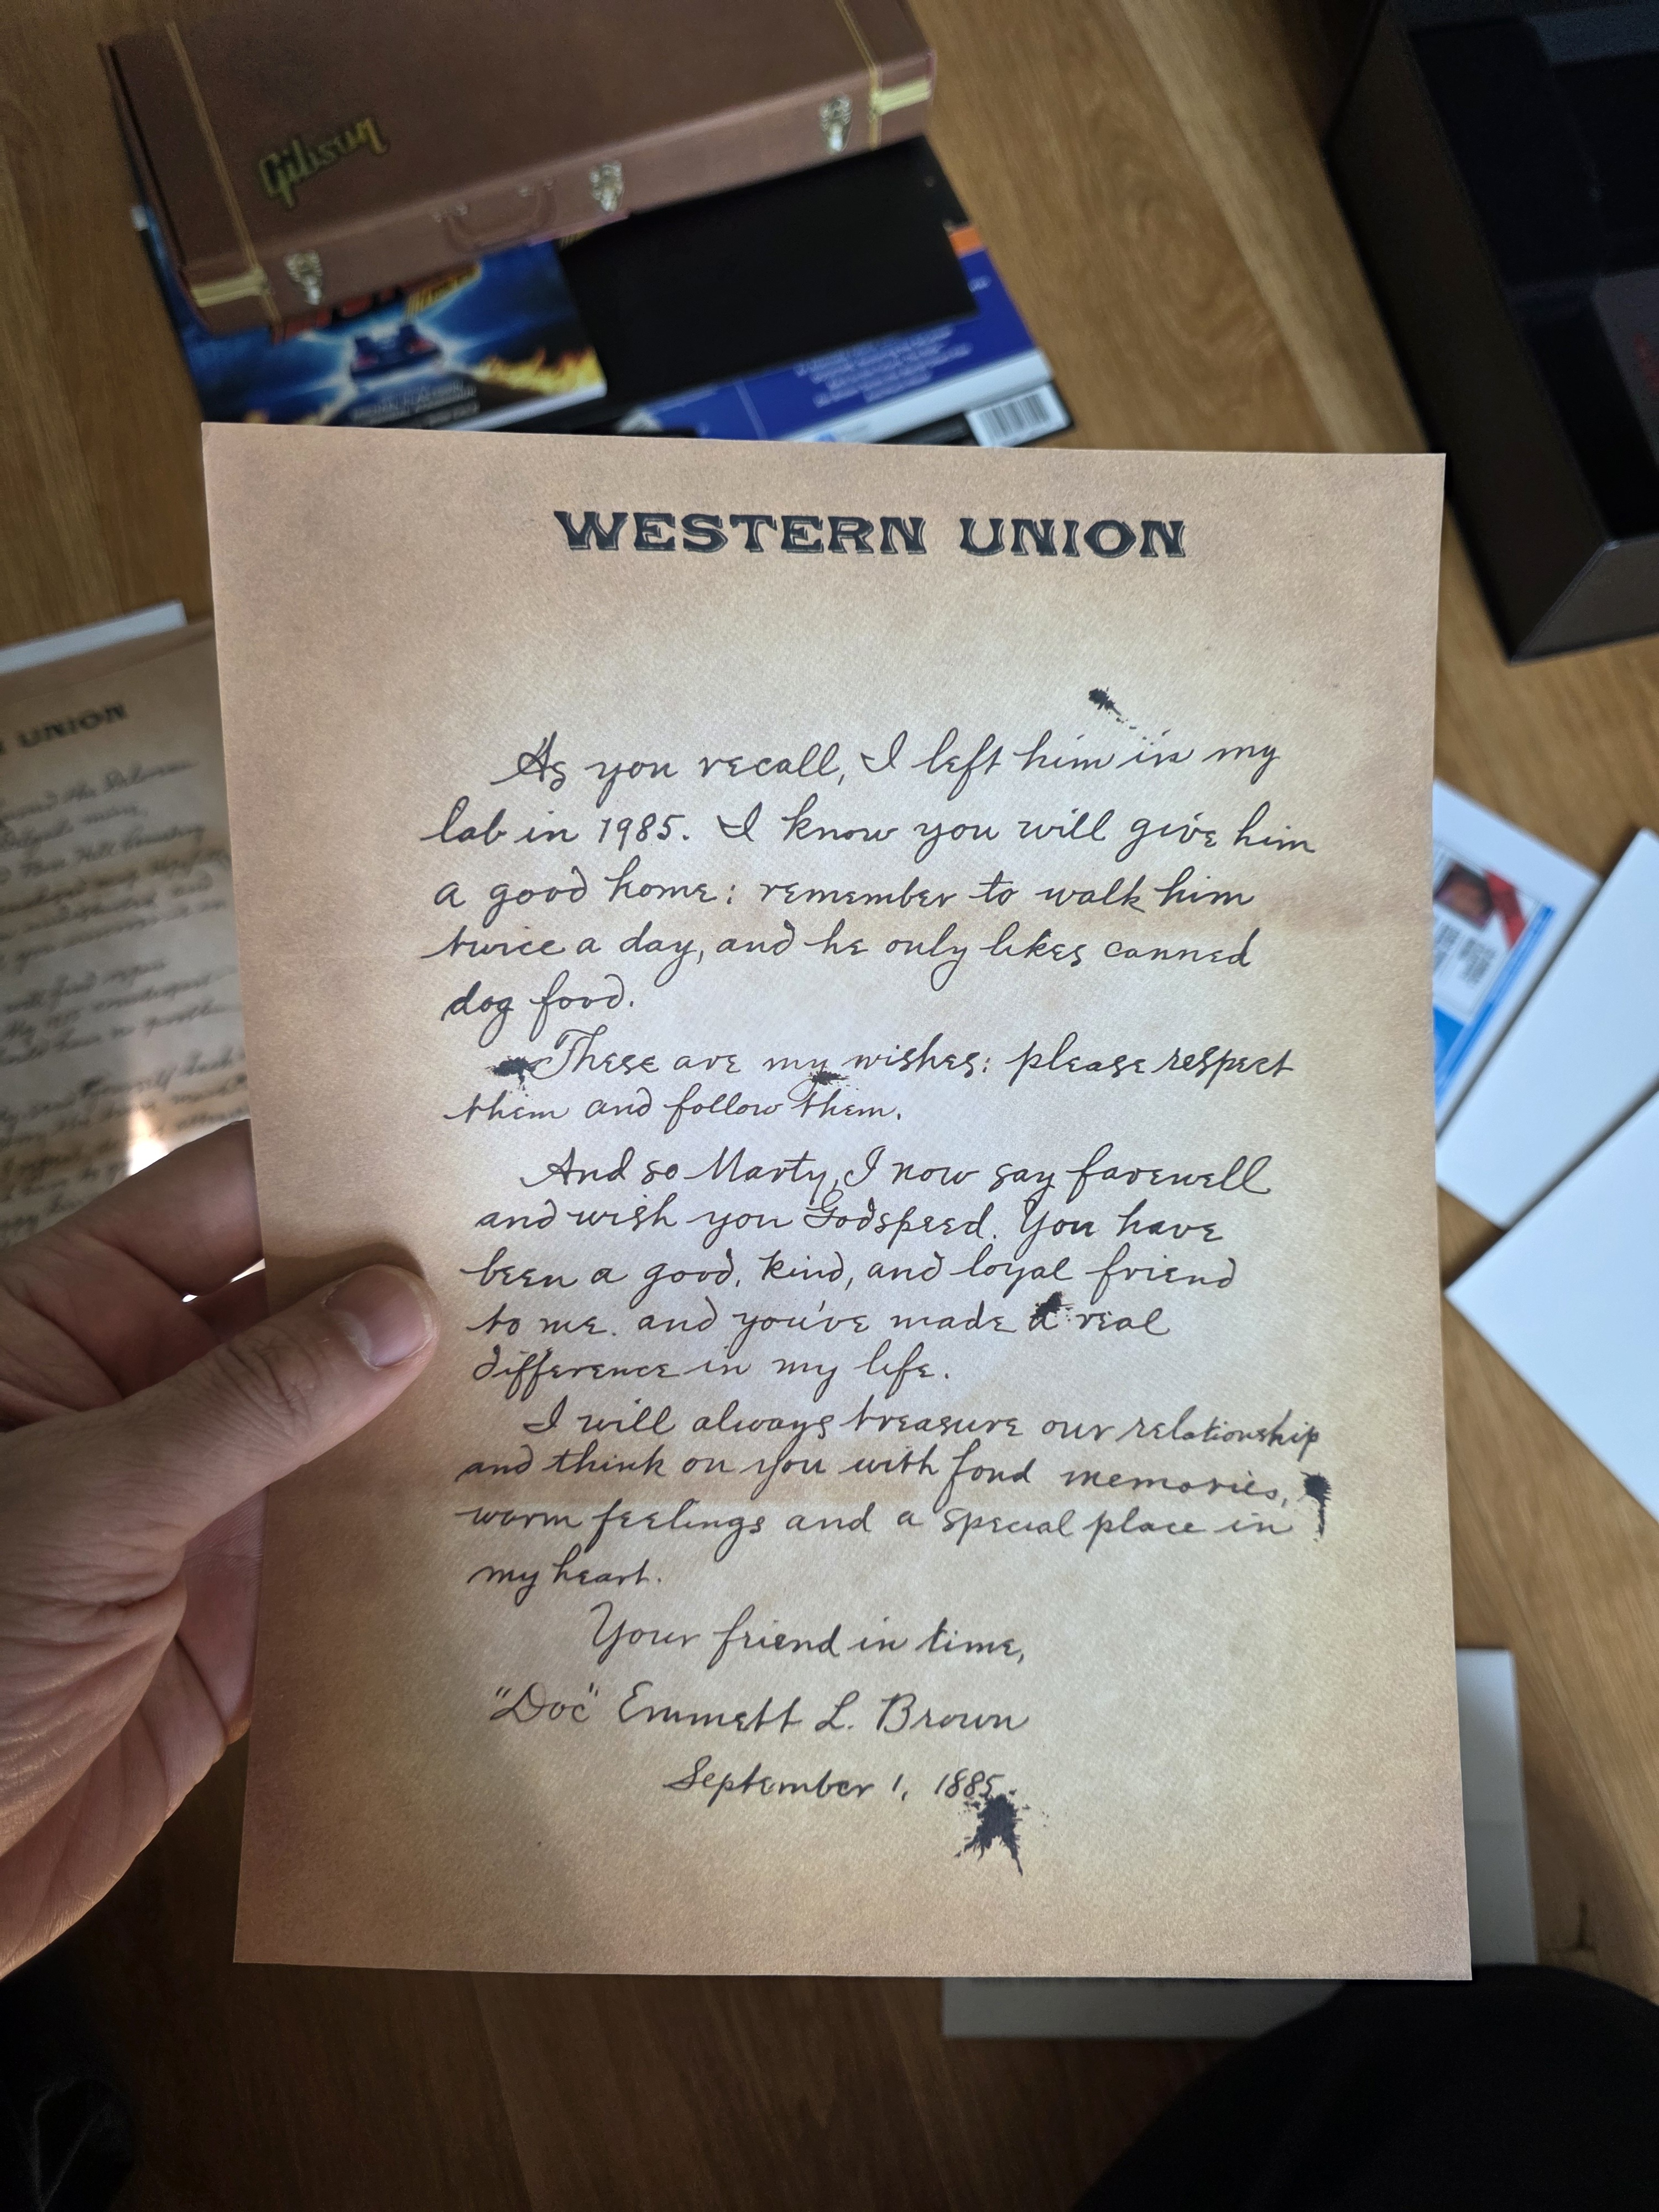 Gibson
WESTERN UNION
As you recall, I left him in my
lab in 1985. I know you will give him
a good home: remember to walk him
twice a day, and he only likes canned
dog food.
These are my wishes: please respect
them and follow them.
And so Marty, I now say farewell
and wish you Godspeed. You have
been a good, kind, and loyal friend
to me. and you've made a real
difference in my life.
I will always treasure our relationship
and think on you with fond memories,
warm feelings and a special place in
my heart.
Your friend in time,
"Doc" Emmett L. Brown
September 1, 1885.
UNION